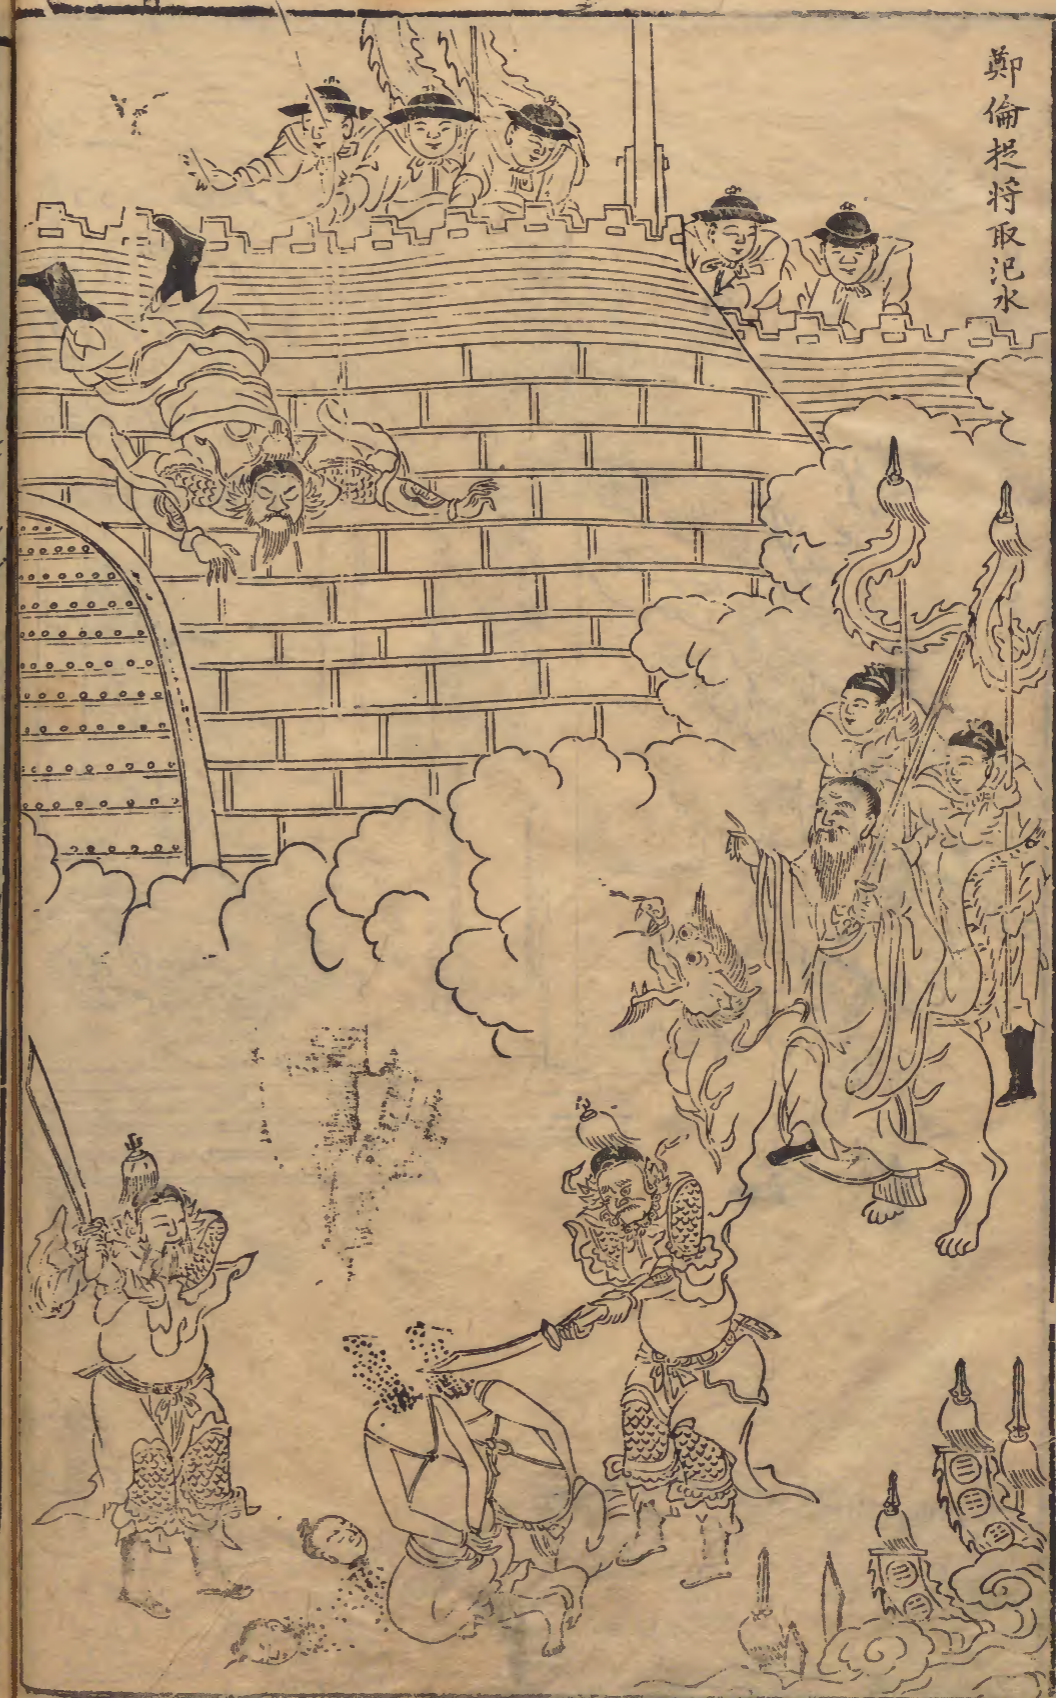 鄭倫捉將取汜水